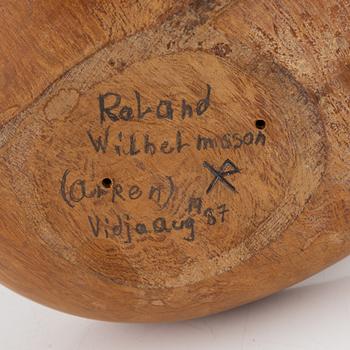 Roland
Wilhelmsson
(arken)
Vidja aug 19 87